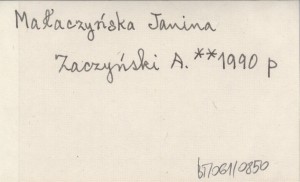 Małaczyńska Janina
Zaczyński A. **1990 p
bT/061/0850